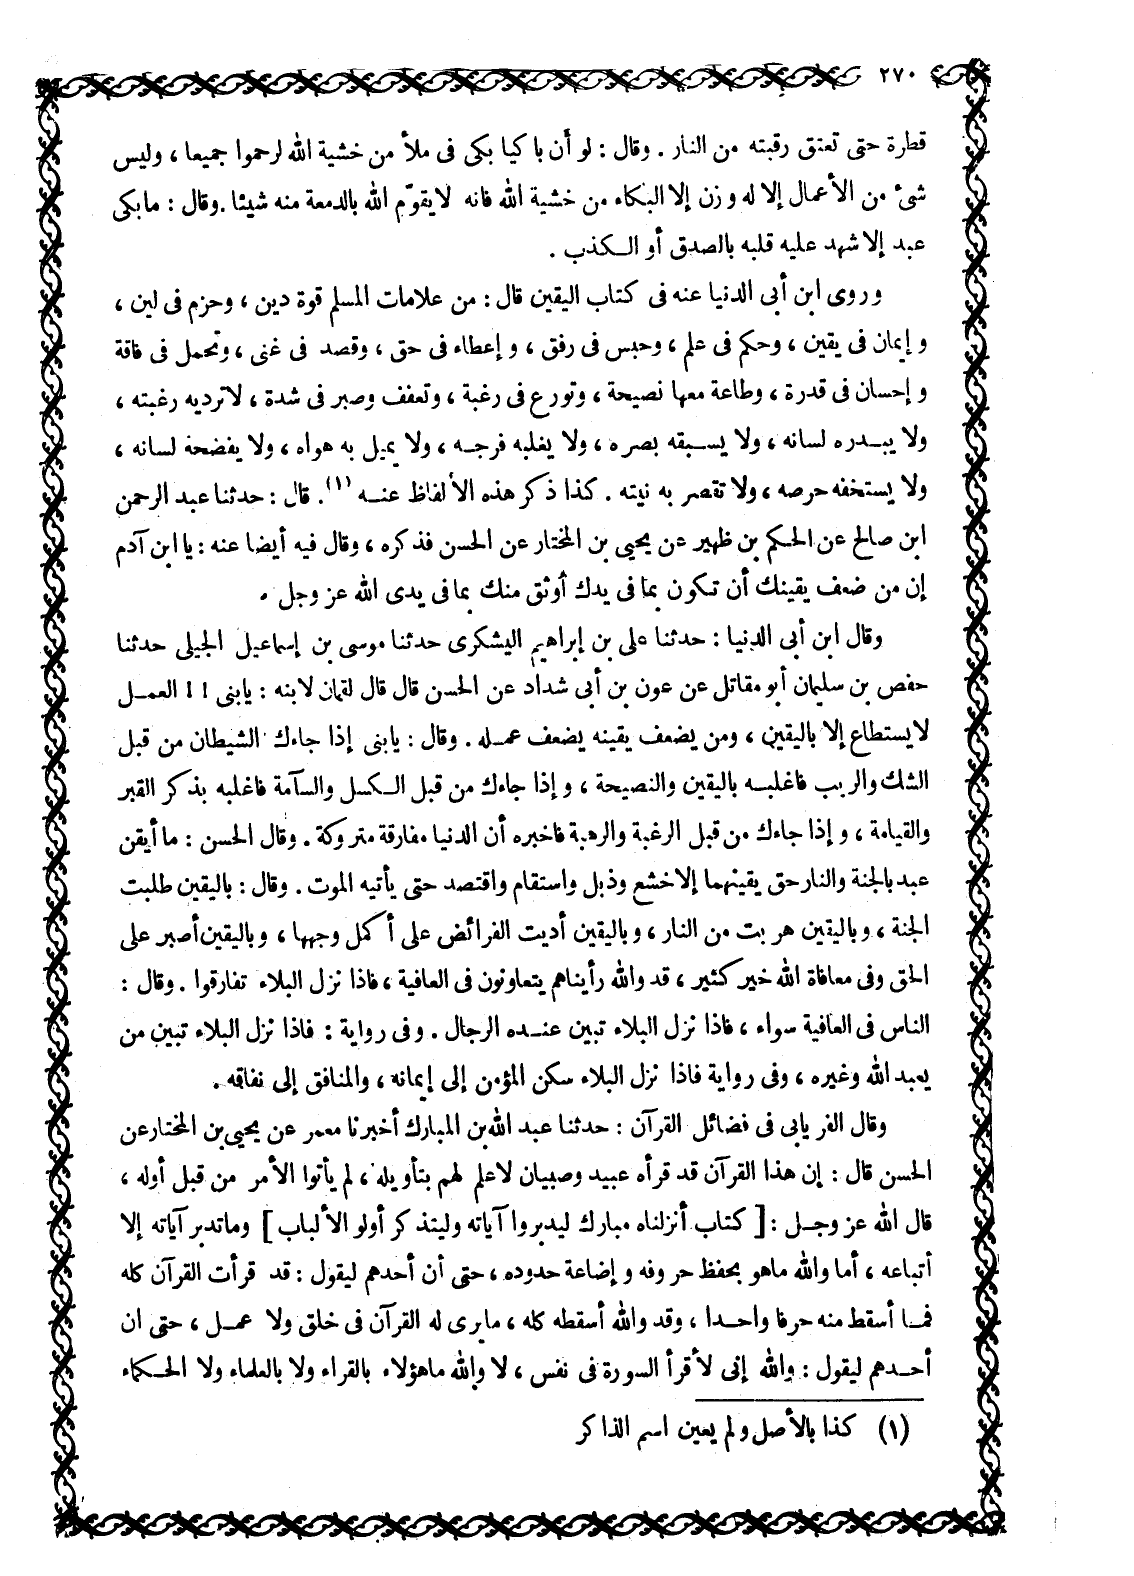 ٢٧٠
قطرة حتى تعتق رقبته من النار . وقال : لو أن باكيا بكى فى ملأ من خشية الله لرحموا جميعا ، وليس
شىء من الأعمال إلا له وزن إلا البكاء من خشية الله فانه لايقوّم الله بالدمعة منه شيئا . وقال : مابكى
عبد إلا شهد عليه قلبه بالصدق أو الكذب .
وروى ابن أبى الدنيا عنه فى كتاب اليقين قال : من علامات المسلم قوة دين ، وحزم فى لين ،
وإيمان فى يقين ، وحكم فى علم ، وحبس فى رفق ، وإعطاء فى حق ، وقصد فى غنى ، وتحمل فى فاقة
وإحسان فى قدرة ، وطاعة معها نصيحة ، وتورع فى رغبة ، وتعفف وصبر فى شدة ، لاترديه رغبته ،
ولا يبدره لسانه ، ولا يسبقه بصره ، ولا يغلبه فرجه ، ولا يميل به هواه ، ولا يفضحه لسانه ،
ولا يستخفه حرصه ، ولا تقصر به نيته . كذا ذكر هذه الألفاظ عنه (١) . قال : حدثنا عبد الرحمن
ابن صالح عن الحكم بن ظهير عن يحيى بن المختار عن الحسن فذكره ، وقال فيه أيضا عنه : يا ابن آدم
إن من ضعف يقينك أن تكون بما فى يدك أوثق منك بما فى يدى الله عز وجل .
وقال ابن أبى الدنيا : حدثنا على بن إبراهيم اليشكرى حدثنا موسى بن إسماعيل الجيلى حدثنا
حفص بن سليمان أبو مقاتل عن عون بن أبى شداد عن الحسن قال قال لقمان لابنه : يابنى ! ! العمل
لايستطاع إلا باليقين ، ومن يضعف يقينه يضعف عمله . وقال : يابنى إذا جاءك الشيطان من قبل
الشك والريب فاغلبه باليقين والنصيحة ، وإذا جاءك من قبل الكسل والسآمة فاغلبه بذكر القبر
والقيامة ، وإذا جاءك من قبل الرغبة والرهبة فاخبره أن الدنيا مفارقة متروكة . وقال الحسن : ما أيقن
عبد بالجنة والنار حق يقينهما إلا خشع وذبل واستقام واقتصد حتى يأتيه الموت . وقال : باليقين طلبت
الجنة ، وباليقين هربت من النار ، وباليقين أديت الفرائض على أكمل وجهها ، وباليقين أصبر على
الحق وفى معافاة الله خير كثير ، قد والله رأيناهم يتعاونون فى العافية ، فاذا نزل البلاء تفارقوا . وقال :
الناس فى العافية سواء ، فاذا نزل البلاء تبين عنده الرجال . وفى رواية : فاذا نزل البلاء تبين من
يعبد الله وغيره ، وفى رواية فاذا نزل البلاء سكن المؤمن إلى إيمانه ، والمنافق إلى نفاقه .
وقال الفريابى فى فضائل القرآن : حدثنا عبد الله بن المبارك أخبرنا معمر عن يحيى بن المختار عن
الحسن قال : إن هذا القرآن قد قرأه عبيد وصبيان لاعلم لهم بتأويله ، لم يأتوا الأمر من قبل أوله ،
قال الله عز وجل : [ كتاب أنزلناه مبارك ليدبروا آياته وليتذكر أولو الألباب ] وماتدبر آياته إلا
أتباعه ، أما والله ماهو بحفظ حروفه وإضاعة حدوده ، حتى أن أحدهم ليقول : قد قرأت القرآن كله
فما أسقط منه حرفا واحدا ، وقد والله أسقطه كله ، مايرى له القرآن فى خلق ولا عمل ، حتى ان
أحدهم ليقول : والله إنى لأقرأ السورة فى نفس ، لا والله ماهؤلاء بالقراء ولا بالعلماء ولا الحكماء
(١) كذا بالأصل ولم يعين اسم الذاكر